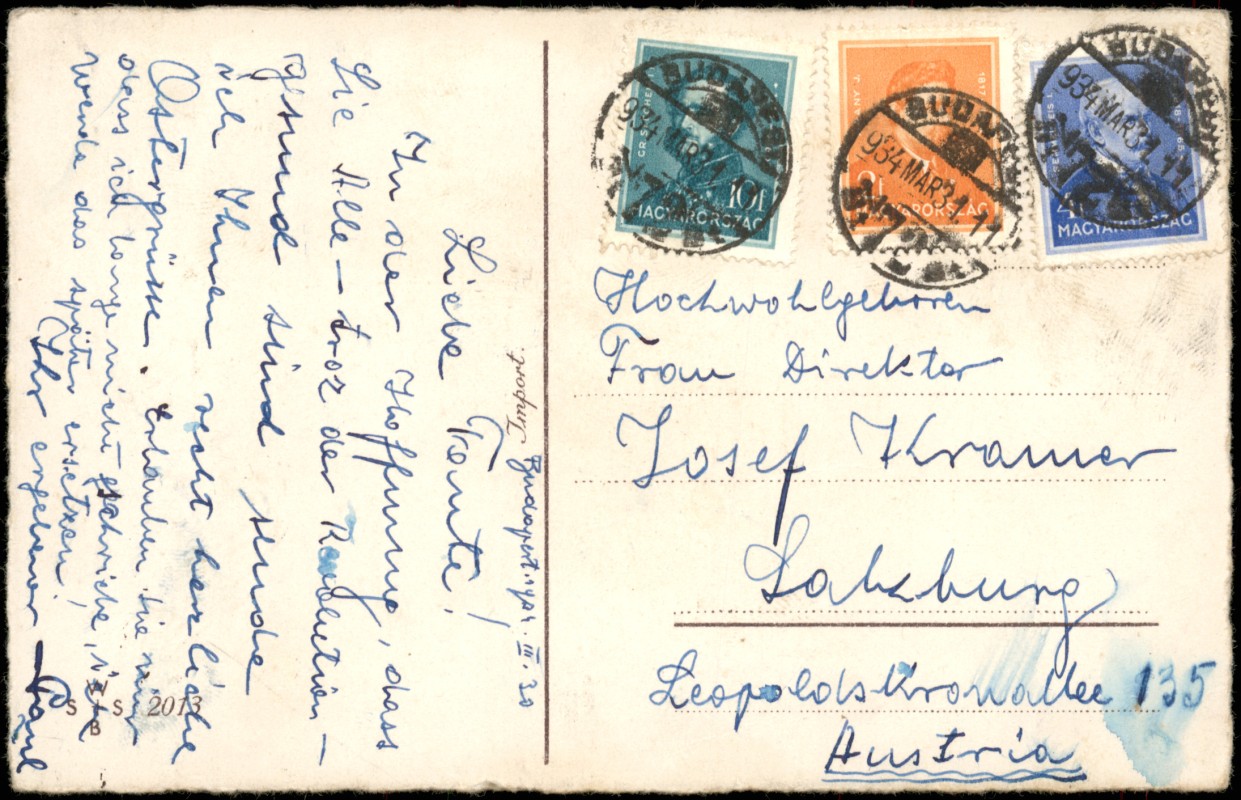 Import.
Budapest. 1934. III. 30
Liebe Tante!
In der Hoffnung, dass
Sie Alle – troz der Revolution –
gesund sind sende
ich Ihnen recht herzliche
Ostergrüsse. Erlauben Sie mir
dass ich lange nicht geschriebe, ich
werde das später ersetzen!
Ihr ergebener
S 2013
BUDAPEST
934 MAR 31 11
10f
MAGYARORSZÁG
BUDAPEST
934 MAR 31 11
2f
MAGYARORSZÁG
1817
BUDAPEST
934 MAR 31 11
MAGYARORSZÁG
Hochwohlgeboren
Frau Direktor
Josef Kramer
Salzburg
Leopoldskronallee 135
Austria